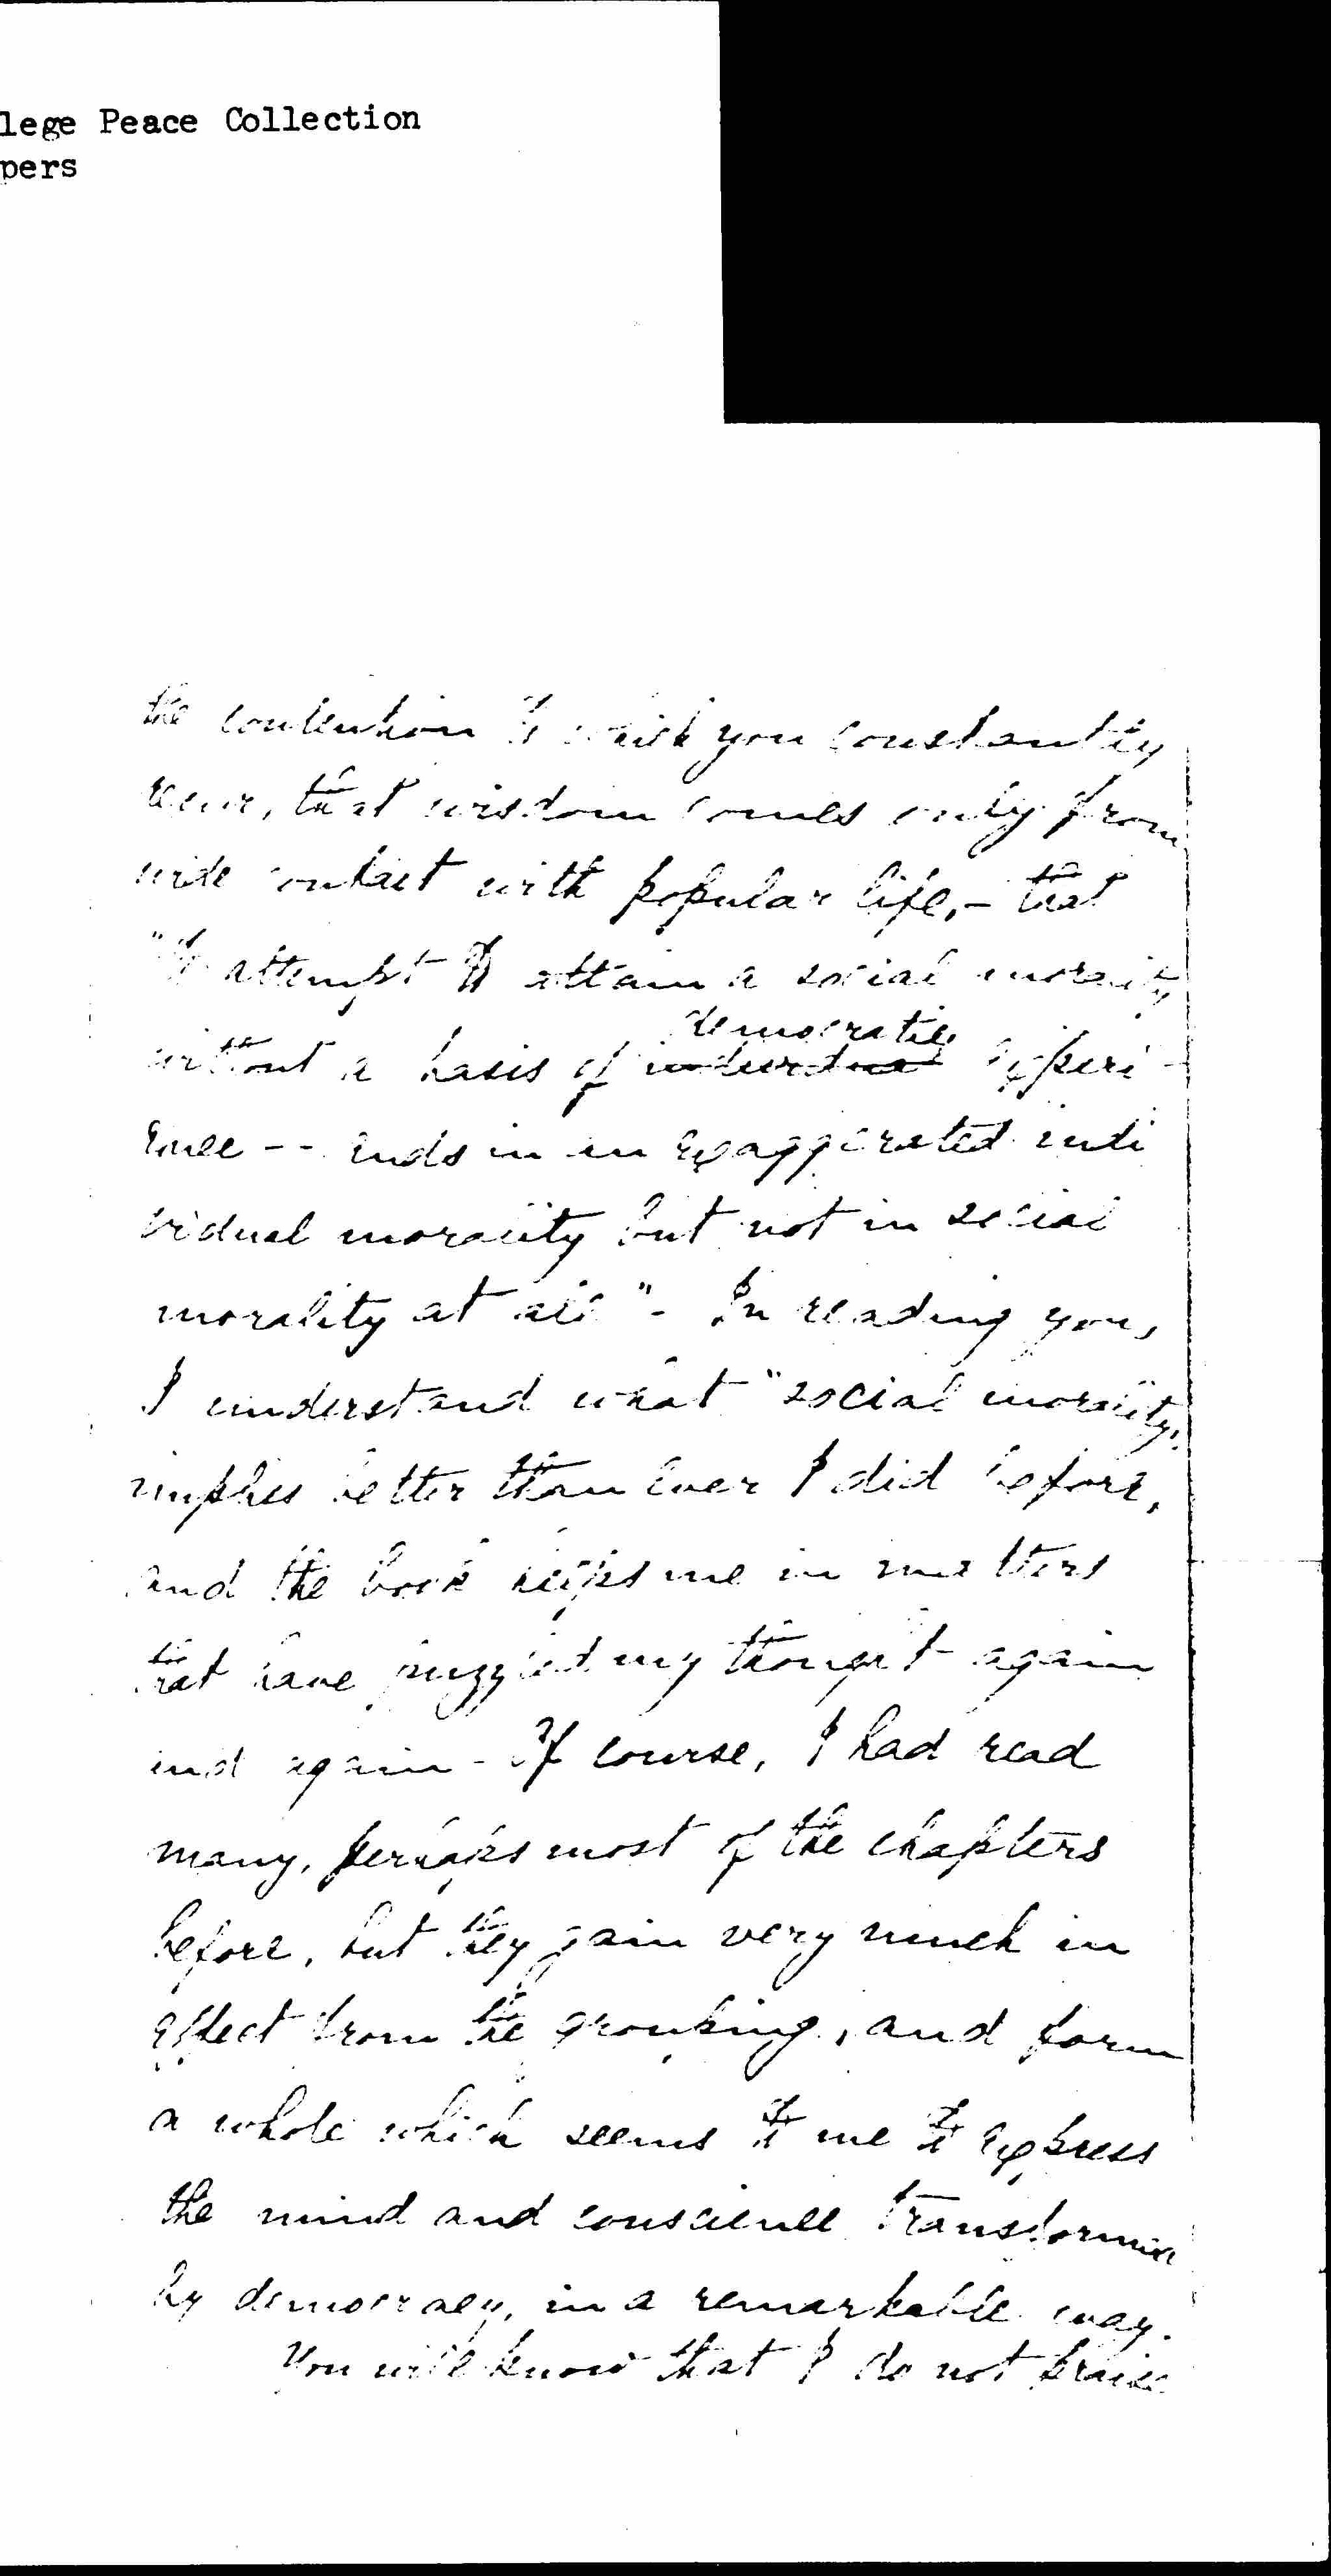 lege Peace Collection
pers
the contention to which you constantly
recur, that wisdom comes only from
wide contact with popular life, - that
"to attempt to attain a social morality
without a basis of democratic experi-
ence -- ends in an exaggerated indi
vidual morality but not in social
morality at all" - In reading you,
I understand what "social morality"
implies better than ever I did before,
and the book helps me in matters
that have puzzled my thought again
and again - Of course, I had read
many, perhaps most of the chapters
before, but they gain very much in
effect from the grouping, and form
a whole which seems to me to express
the mind and conscience transformed
by democracy, in a remarkable way.
You will know that I do not praise